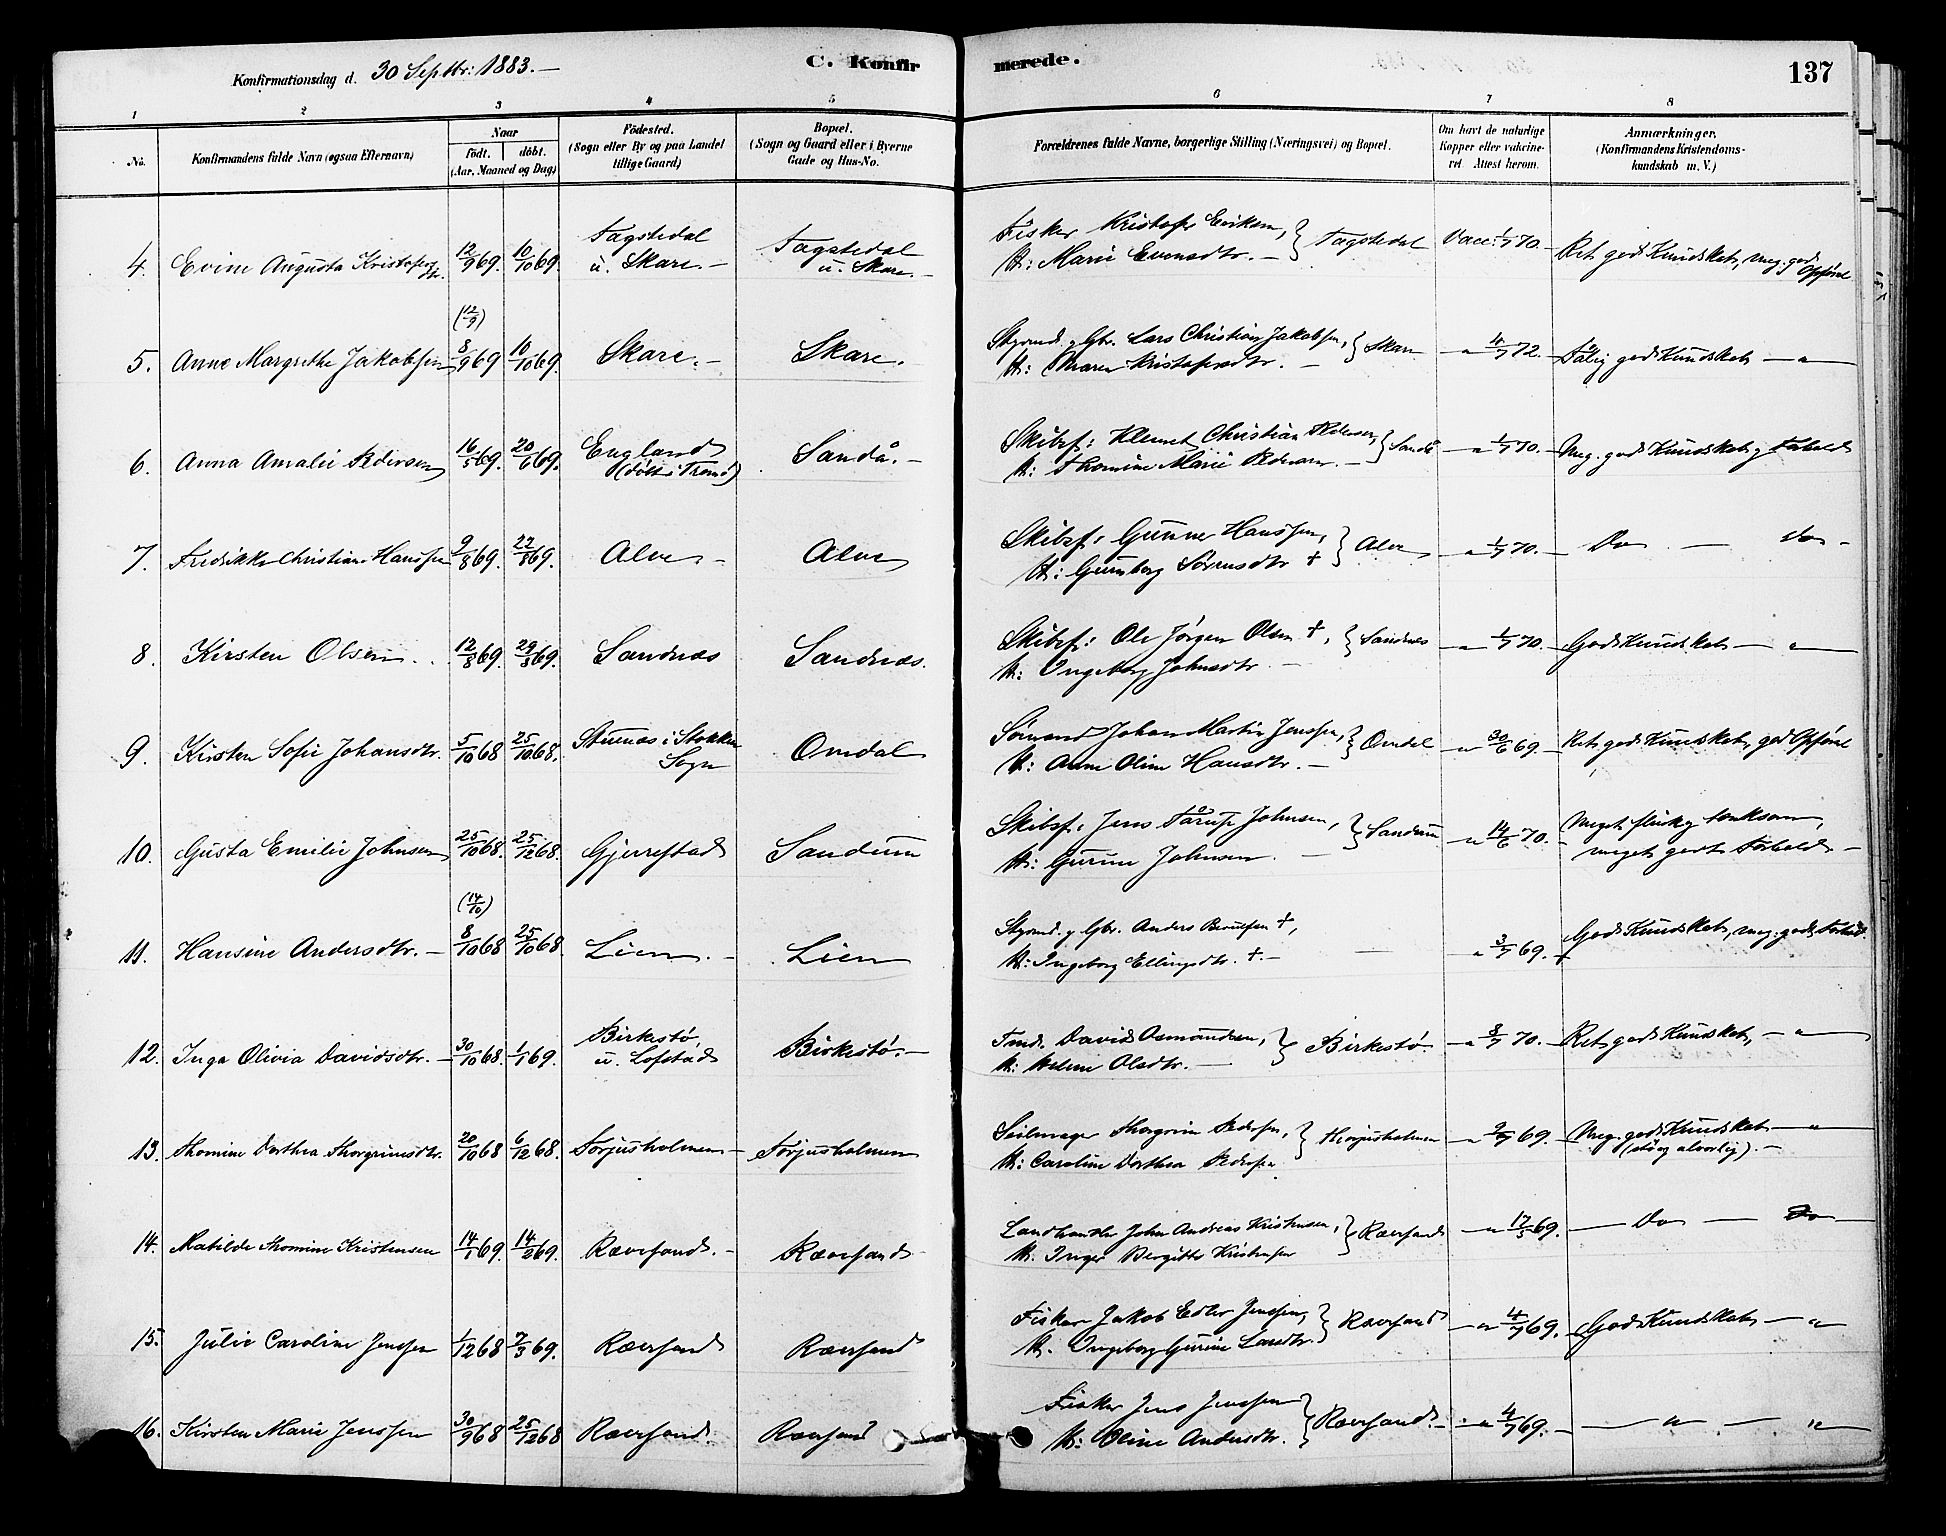 Konfirmationsdag d. 30 Septbr: 1883.—
C. Konfirmerede.
137
1 2 3 4 5 6 7 8
No.
Konfirmandens fulde Navn (ogsaa Efternavn)
Naar
født. døbt.
(Aar, Maaned og Dag)
Fødested.
(Sogn eller By og paa Landet
tillige Gaard)
Bopæl.
(Sogn og Gaard eller i Byerne
Gade og Hus-No.
Forældrenes fulde Navne, borgerlige Stilling (Næringsvei) og Bopæl.
Om havt de naturlige
Kopper eller vakcine-
ret. Attest herom.
Anmærkninger.
(Konfirmandens Kristendoms-
kundskab m. V.)
4. Evine Augusta 12/9 69. 10/10 69. Tagstedal
u. Skare.—
Tagstedal
u. Skare.—
Fisker Kristofer Eriksen,
H: Marie Evensdtr.— } Tagstedal
Vacc: 1/7 70.—
Ret god Kundskab, meg. god
Opførsel
5. Anne Margrethe Jakobsen (12/9)
8/9 69 10/10 69. Skare.— Skare.
Lars Christian Jakobsen,
H: Maren Kristofersdtr.— } Skare
—"— 4/7 72.— god Kundskab —"—
6. Anna Amalie Pedersen 16/5 69. 20/6 69. England
(døbt i Tromø)
Sandå.—
Skibsf: Klemet Christian Pedersen,
H: Thomine Marie Pedersen.— } Sandå
—"— 1/7 70.— Meg. god Kundskab og Forhold
7. Fredrikke Christiane Hanssen 9/8 69. 22/8 69. Alve.— Alve
Skibsf: Gunner Hanssen,
H: Gunborg Sørensdtr † } Alve
—"— 1/7 70.— Do — Do —
8. Kirsten Olsen. 12/8 69. 29/8 69. Sandnæs Sandnæs.
Skibsf: Ole Jørgen Olsen †,
H: Ingeborg Johnsdtr.— } Sandnæs
—"— 1/7 70.— God Kundskab —"—
9. Kirsten Sofie Johansdtr. 5/10 68 25/10 68. Stuenæs i Stokken
Sogn
Omdal
Sømand Johan Martin Jenssen,
H: Anne Oline Hansdtr.— } Omdal
—"— 30/6 69.— Ret god Kundskab, god Opførsel
10. Gusta Emilie Johnsen 25/10 68. 25/12 68. Gjerrestad Sandum
Skibsf: Jens Tårup Johnsen,
H: Gurine Johnsen.— } Sandum
—"— 14/6 70.— Meget flink og tenksom,
meget godt Forhold.—
11. Hansine Andersdtr.— (14/10)
8/10 68 25/10 68 Lien.— Lien
Anders †,
H: Ingeborg Ellingsdtr. †.—
—"— 3/7 69.— God Kundskab, meg. godt Forhold.
12. Inga Olivia Davidsdtr.— 30/10 68. 1/1 69. Birkestø,
u. Lofstad
Birkestø.—
David Osmundsen,
H: Helene Olsdtr.— } Birkestø.
—"— 8/7 70.— Ret god Kundskab, —"—
13. Thomine Dorthea Thorgrimsdtr. 20/10 68 6/12 68. Torjusholmen— Torjusholmen
Seilmager Thorgrim Pedersen,
H: Caroline Dorthea Pedersen } Thorjusholmen
—"— 2/7 69.— Meg. god Kundskab —"—
(stø og alvorlig).—
14. Matilde Thomine Kristensen 14/1 69. 14/2 69. Rævesand.— Rævesand
Landhandler John Andreas Kristensen,
H. Inger Bergitte Kristensen } Rævesand
—"— 17/5 69.— Do — Do
15. Julie Caroline Jenssen 1/12 68 7/3 69. Rævesand Rævesand
Fisker Jakob Edler Jenssen,
H. Ingeborg Gurine Larsdtr. } Rævesand
—"— 4/7 69.— God Kundskab —"—
16. Kirsten Marie Jenssen 30/9 68 25/12 68 Rævesand.— Rævesand
Fisker Jens Jenssen
H: Oline Andersdtr. } Rævesand.—
—"— 4/7 69.— —"— —"—